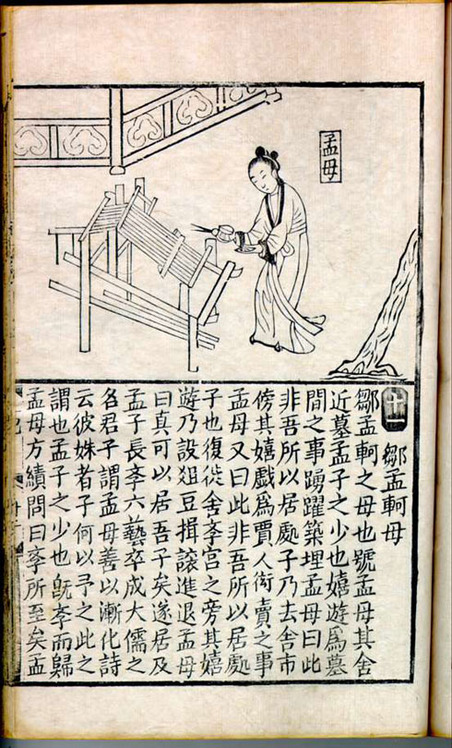 孟母
十一
鄒孟軻母
鄒孟軻之母也號孟母其舍
近墓孟子之少也嬉遊爲墓
間之事踴躍築埋孟母曰此
非吾所以居處子乃去舍市
傍其嬉戲爲賈人衒賣之事
孟母又曰此非吾所以居處
子也復徙舍斈宮之旁其嬉
遊乃設俎豆揖讓進退孟母
曰真可以居吾子矣遂居及
孟子長斈六藝卒成大儒之
名君子謂孟母善以漸化詩
云彼姝者子何以予之此之
謂也孟子之少也旣斈而歸
孟母方績問曰斈所至矣孟